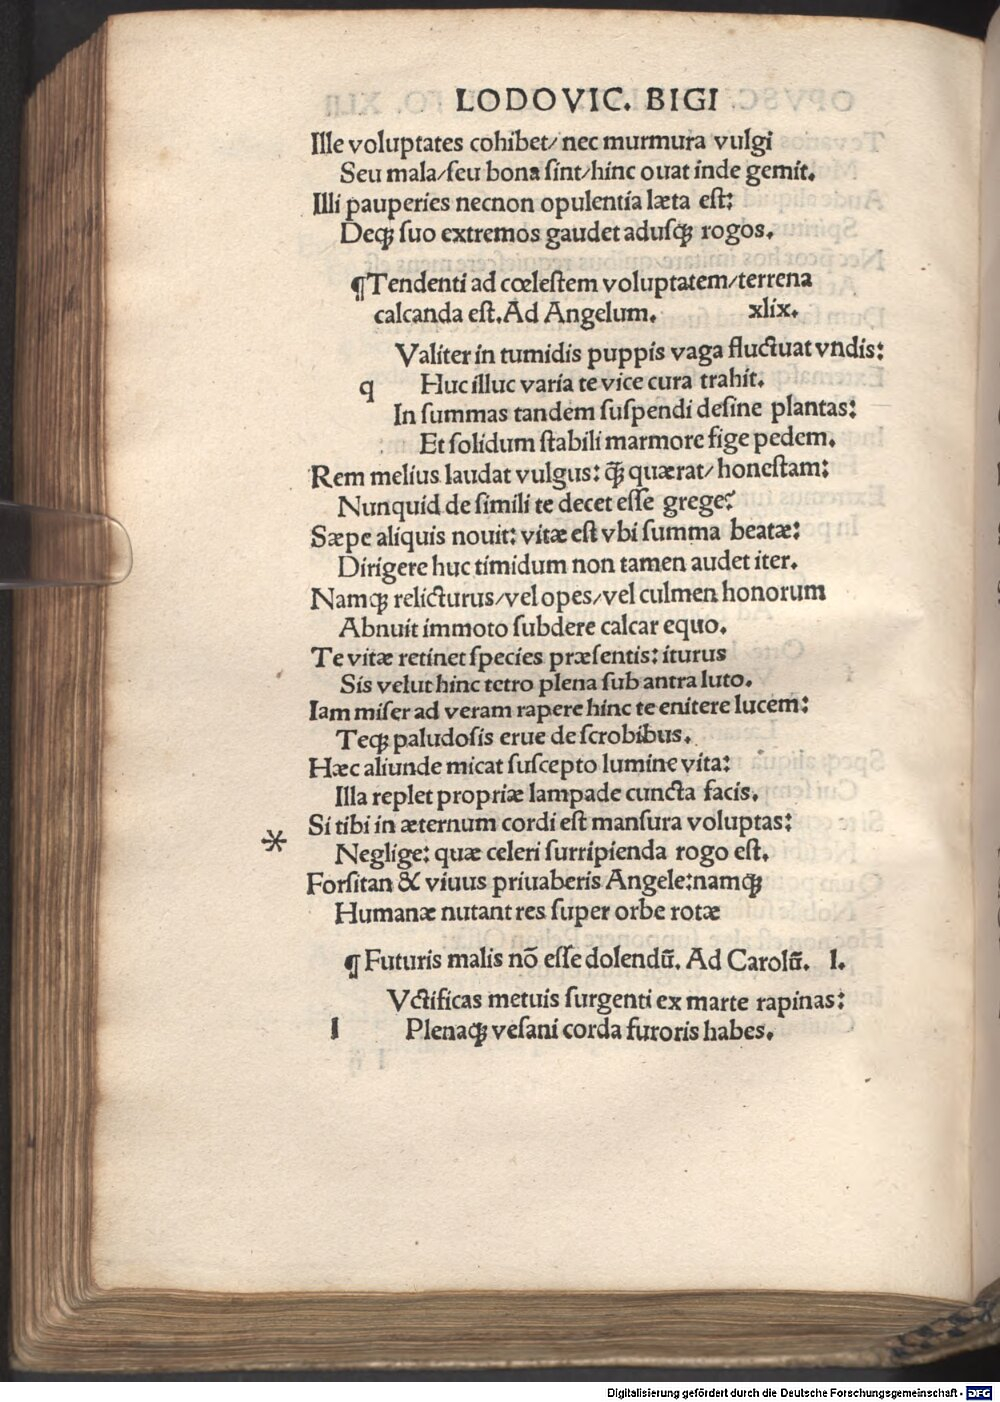 LODOVIC. BIGI
Ille voluptates cohibet/nec murmura vulgi
Seu mala/seu bona sint/hinc ouat inde gemit.
Illi pauperies necnon opulentia læta est:
Deqꝫ suo extremos gaudet adusqꝫ rogos.
¶Tendenti ad cœlestem voluptatem/terrena
calcanda est. Ad Angelum. xlix.
Valiter in tumidis puppis vaga fluctuat vndis:
q Huc illuc varia te vice cura trahit.
In summas tandem suspendi desine plantas:
Et solidum stabili marmore fige pedem.
Rem melius laudat vulgus: q̃ꝫ quærat/honestam:
Nunquid de simili te decet esse grege?
Sæpe aliquis nouit: vitæ est vbi summa beatæ:
Dirigere huc timidum non tamen audet iter.
Namqꝫ relicturus/vel opes/vel culmen honorum
Abnuit immoto subdere calcar equo.
Te vitæ retinet species præsentis: iturus
Sis velut hinc tetro plena sub antra luto.
Iam miser ad veram rapere hinc te enitere lucem:
Teqꝫ paludosis erue de scrobibus.
Hæc aliunde micat suscepto lumine vita:
Illa replet propriæ lampade cuncta facis.
Si tibi in æternum cordi est mansura voluptas:
* Neglige: quæ celeri surripienda rogo est.
Forsitan & viuus priuaberis Angele: namqꝫ
Humanæ nutant res super orbe rotæ
¶Futuris malis nõ esse dolendũ. Ad Carolũ. l.
Vctificas metuis surgenti ex marte rapinas:
l Plenaqꝫ vesani corda furoris habes.
Digitalisierung gefördert durch die Deutsche Forschungsgemeinschaft - DFG